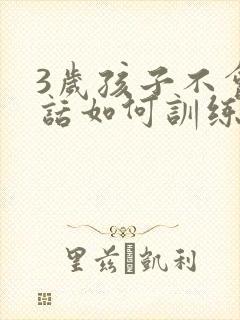 3歲孩子不會
話如何訓練
里茲·凱利